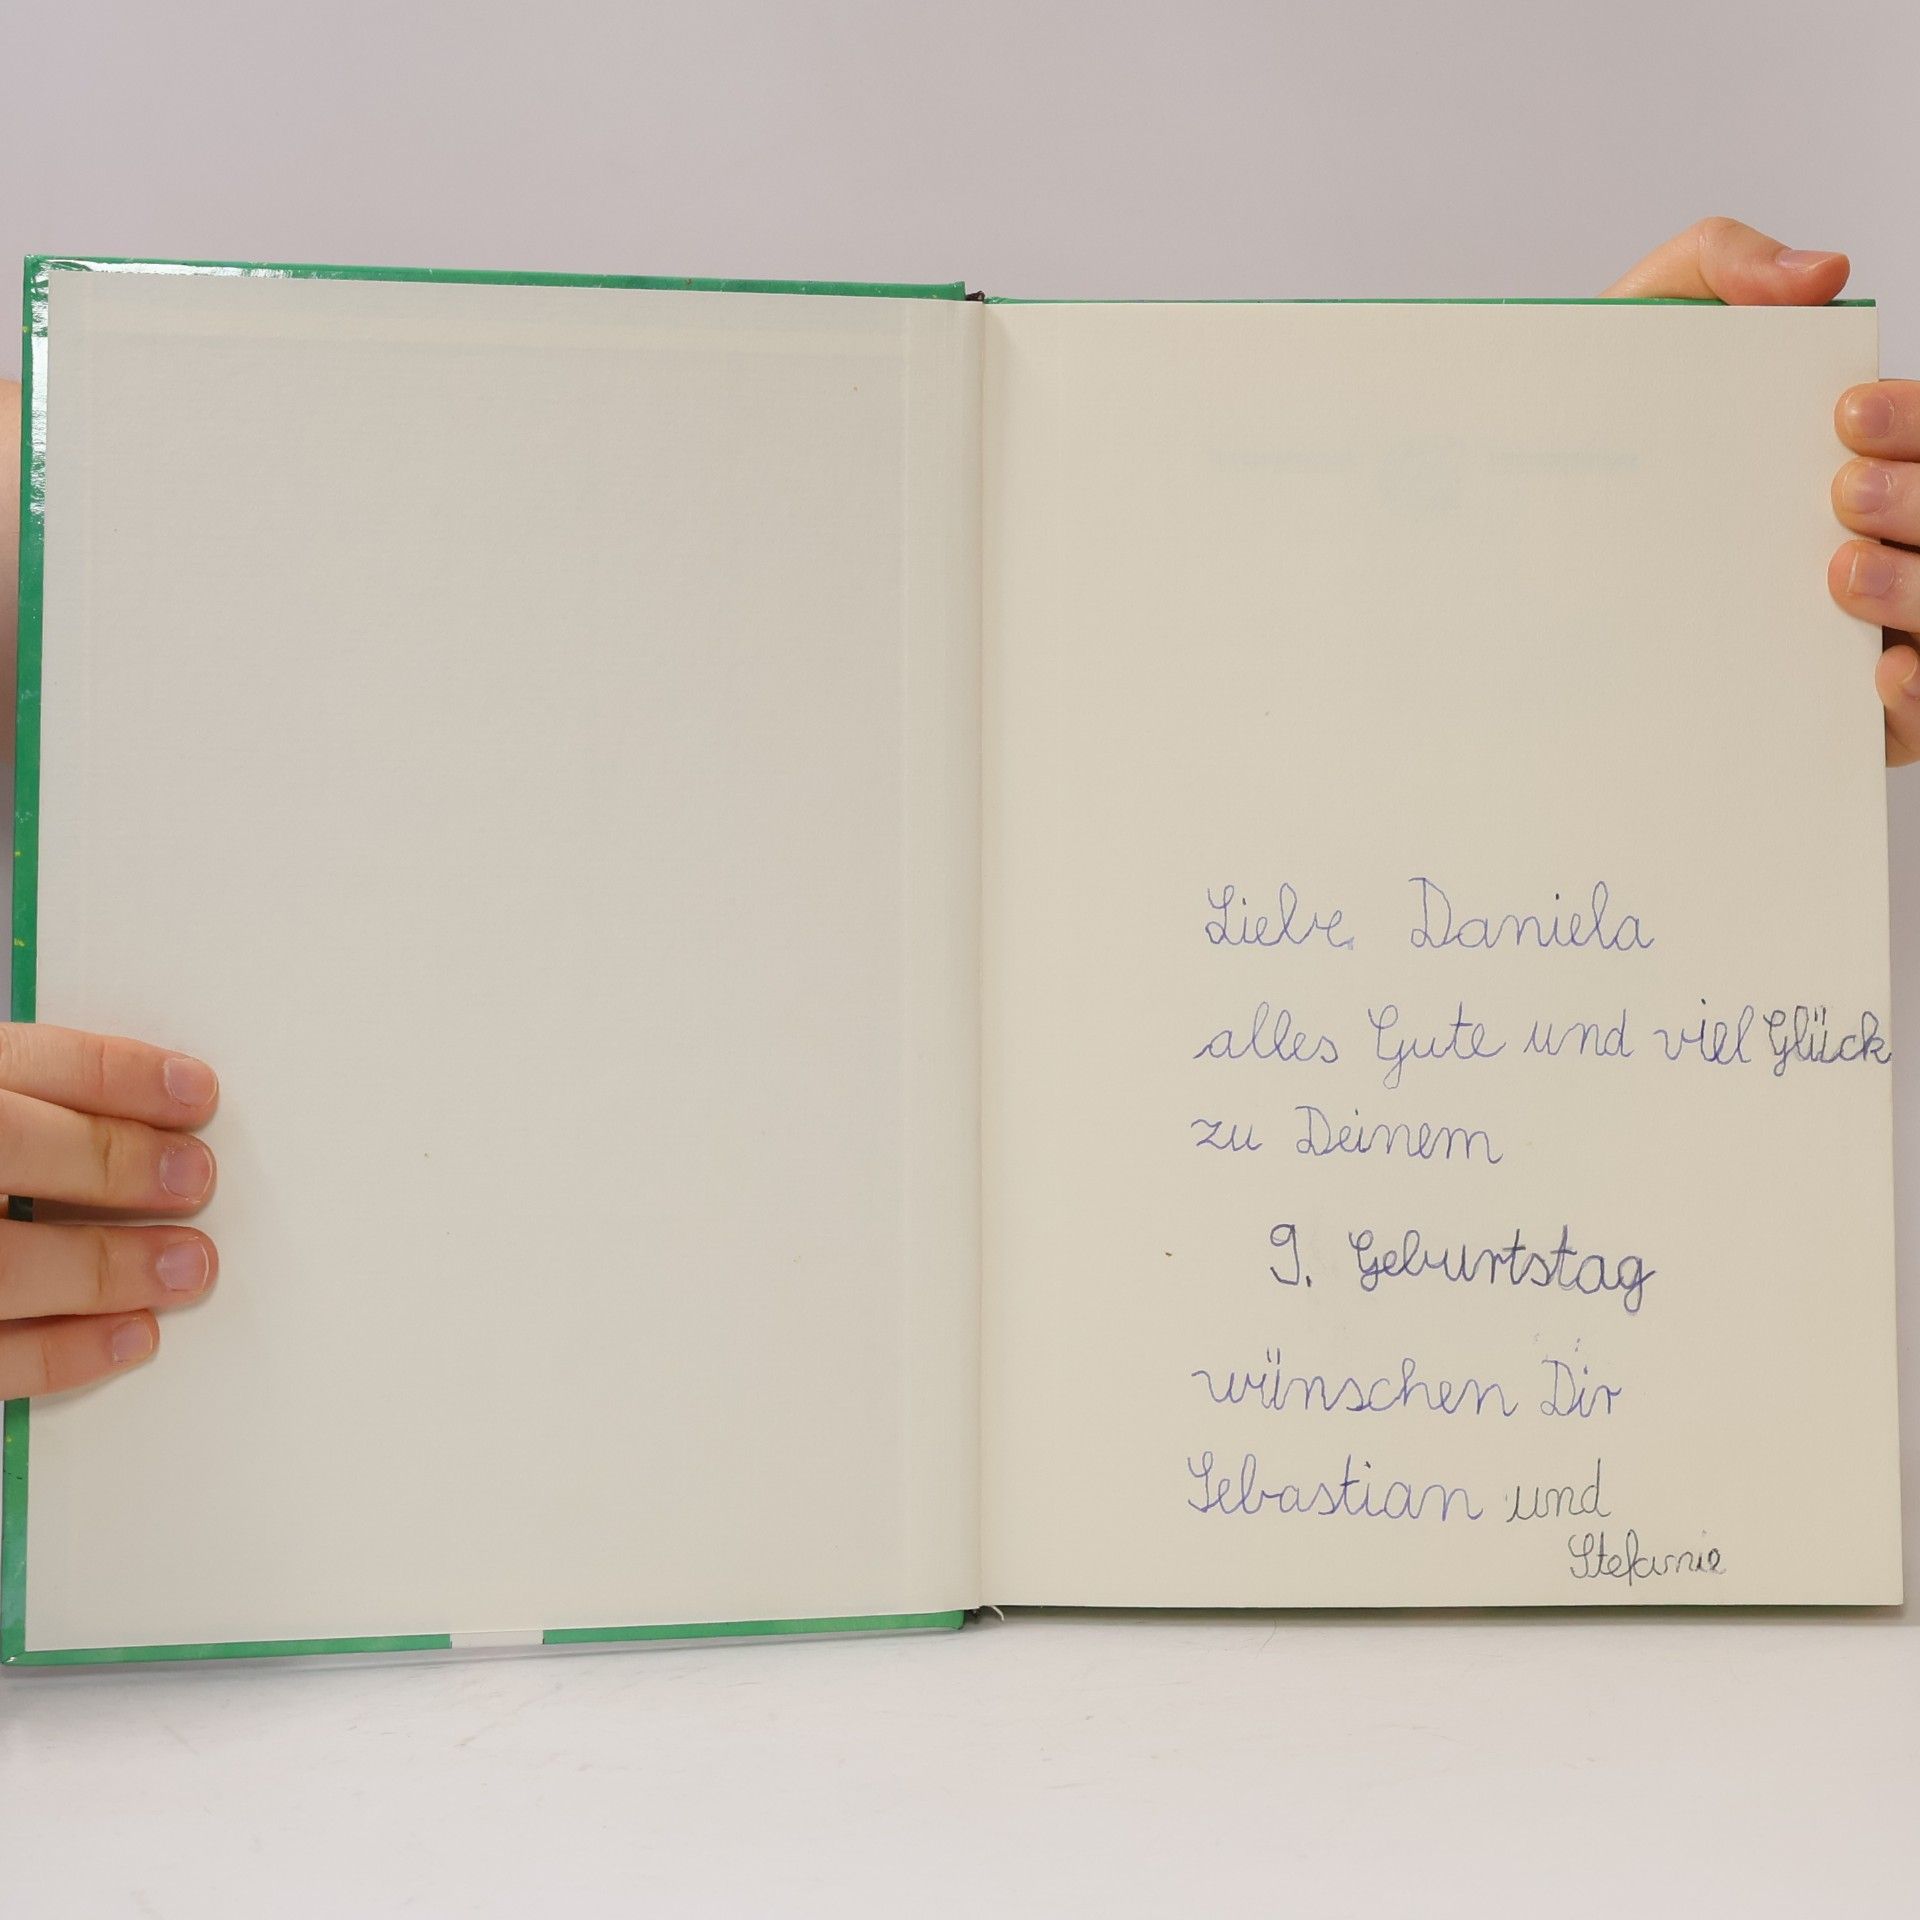 Liebe Daniela
alles Gute und viel Glück
zu Deinem
9. Geburtstag
wünschen Dir
Sebastian und
Stefanie